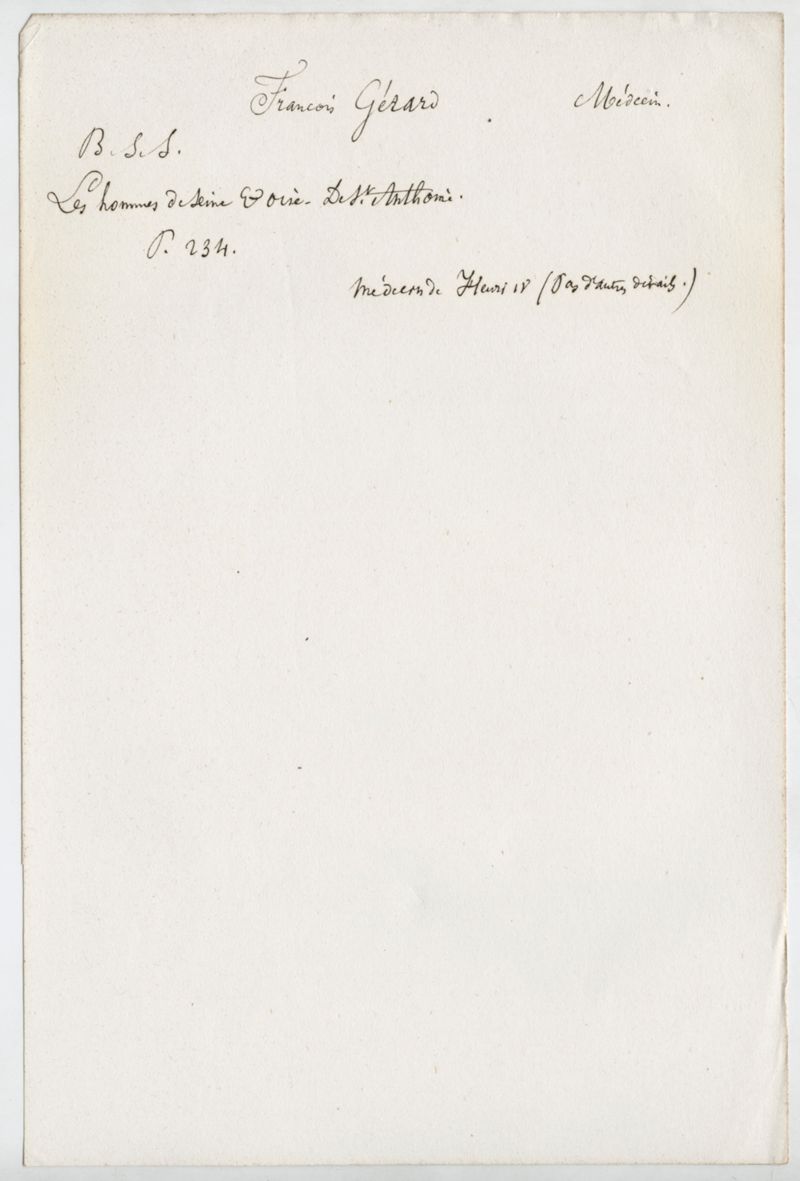 François Gérard. Médecin.
B. S. S.
Les hommes de Seine & oise - De St. Anthoine.
P. 234.
Médecin de Henri IV (Pas d'autres détails.)